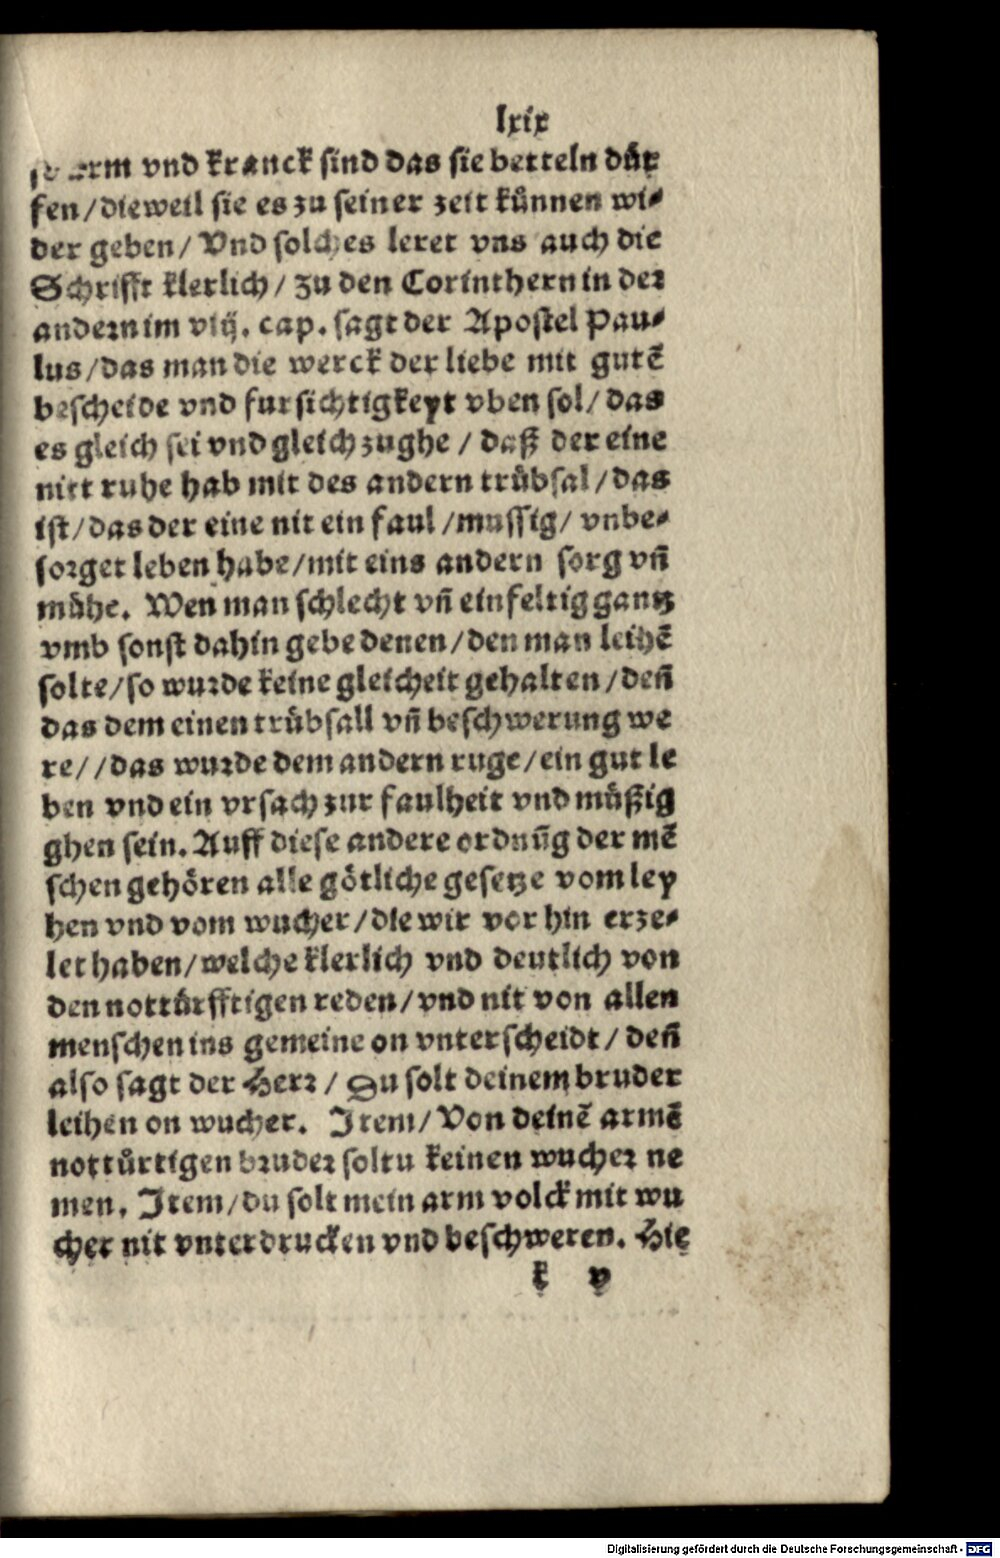 lxix
so arm vnd kranck sind das sie betteln dür
fen/dieweil sie es zu seiner zeit künnen wi-
der geben/ Vnd solches leret vns auch die
Schrifft klerlich/ zu den Corinthern in der
andern im viij. cap. sagt der Apostel Pau-
lus/das man die werck der liebe mit gutē
bescheide vnd fursichtigkeyt vben sol/ das
es gleich sei vnd gleich zughe / daß der eine
nitt ruhe hab mit des andern trübsal/das
ist/das der eine nit ein faul/mussig/ vnbe-
sorget leben habe/mit eins andern sorg vñ
mühe. Wen man schlecht vñ einfeltig gantz
vmb sonst dahin gebe denen/den man leihē
solte/so wurde keine gleicheit gehalten/deñ
das dem einen trübsall vñ beschwerung we
re//das wurde dem andern ruge/ein gut le
ben vnd ein vrsach zur faulheit vnd müßig
ghen sein. Auff diese andere ordnūg der mē
schen gehören alle götliche gesetze vom ley
hen vnd vom wucher/die wir vor hin erze-
let haben/welche klerlich vnd deutlich von
den nottürfftigen reden/vnd nit von allen
menschen ins gemeine on vnterscheidt/ deñ
also sagt der Herr/ Du solt deinem bruder
leihen on wucher. Item/ Von deinē armē
nottürtigen bruder soltu keinen wucher ne
men. Item/du solt mein arm volck mit wu
cher nit vnterdrucken vnd beschweren. Hie
k v
Digitalisierung gefördert durch die Deutsche Forschungsgemeinschaft - DFG